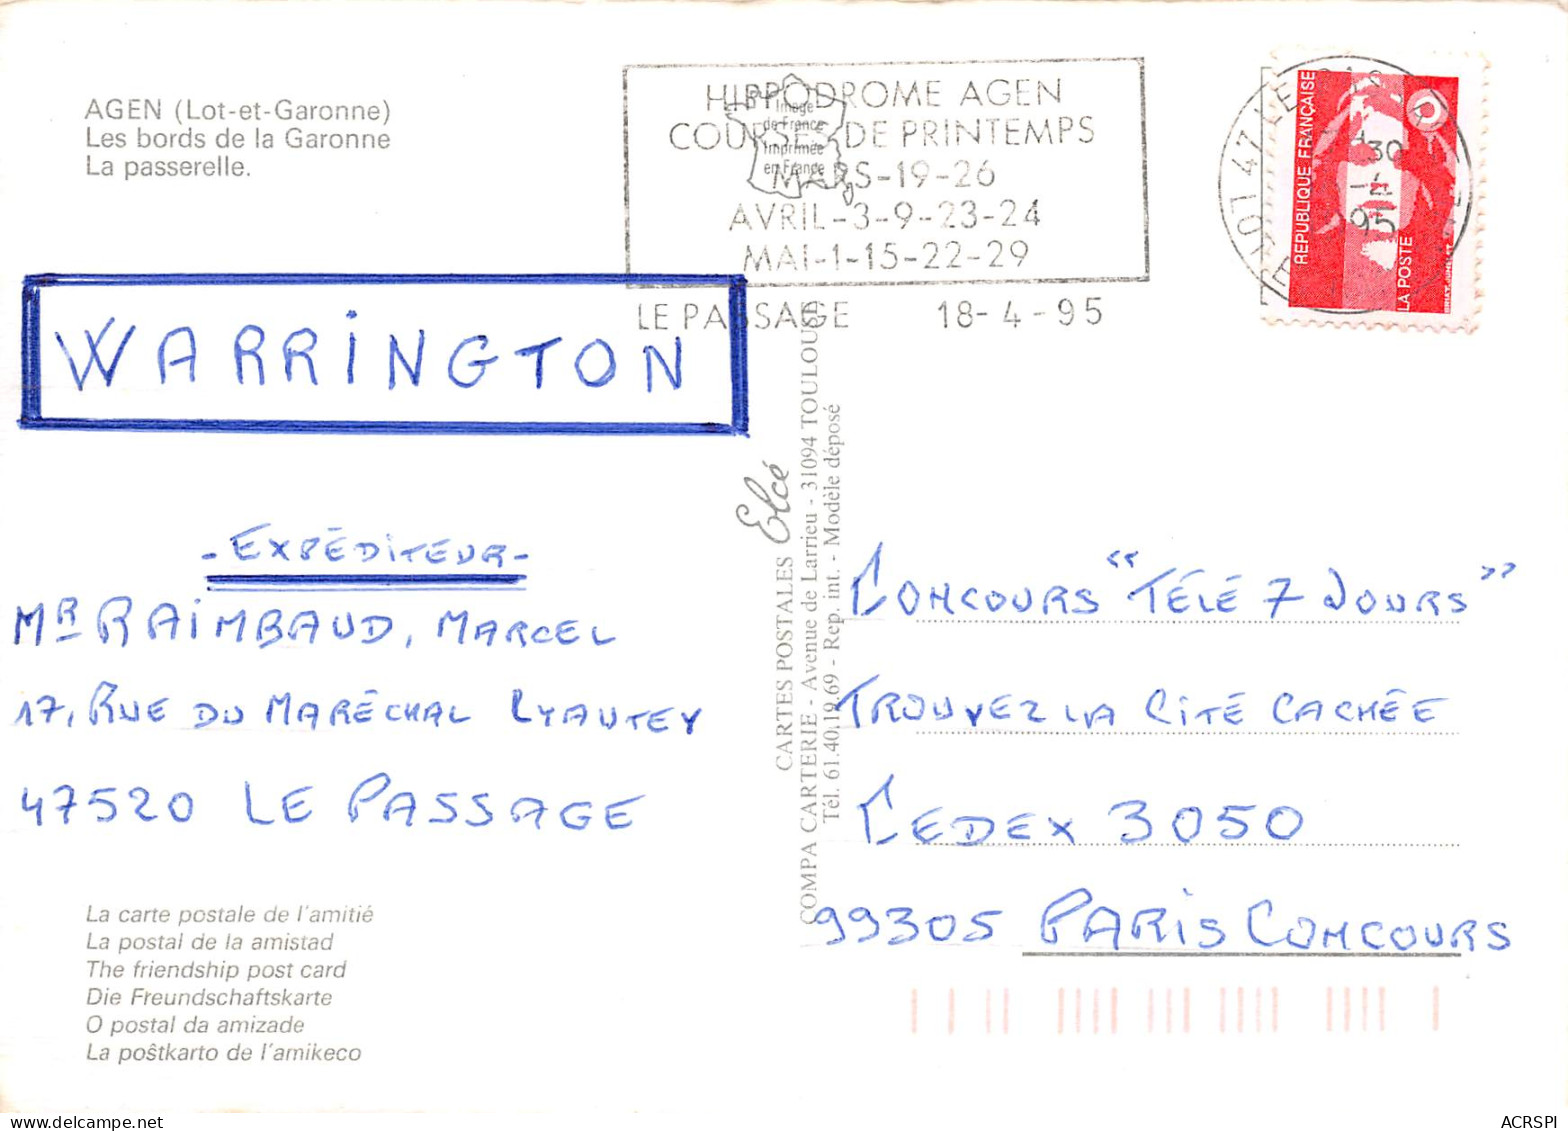 AGEN (Lot-et-Garonne)
Les bords de la Garonne
La passerelle.
HIPPODROME AGEN
COURSES DE PRINTEMPS
MARS-19-26
AVRIL-3-9-23-24
MAI-1-15-22-29
LE PASSAGE 18-4-95
Image
de France
Imprimée
en France
REPUBLIQUE FRANÇAISE
LA POSTE
WARRINGTON
- EXPÉDITEUR -
MR RAIMBAUD, MARCEL
17, RUE DU MARÉCHAL LYAUTEY
47520 LE PASSAGE
CARTES POSTALES Elcé
COMPA CARTERIE - Avenue de Larrieu - 31094 TOULOUSE
Tél. 61.40.19.69 - Rep. int. - Modèle déposé
CONCOURS "TÉLÉ 7 JOURS"
TROUVEZ LA CITÉ CACHÉE
CEDEX 3050
99305 PARIS CONCOURS
La carte postale de l'amitié
La postal de la amistad
The friendship post card
Die Freundschaftskarte
O postal da amizade
La poŝtkarto de l'amikeco
ACRSPI